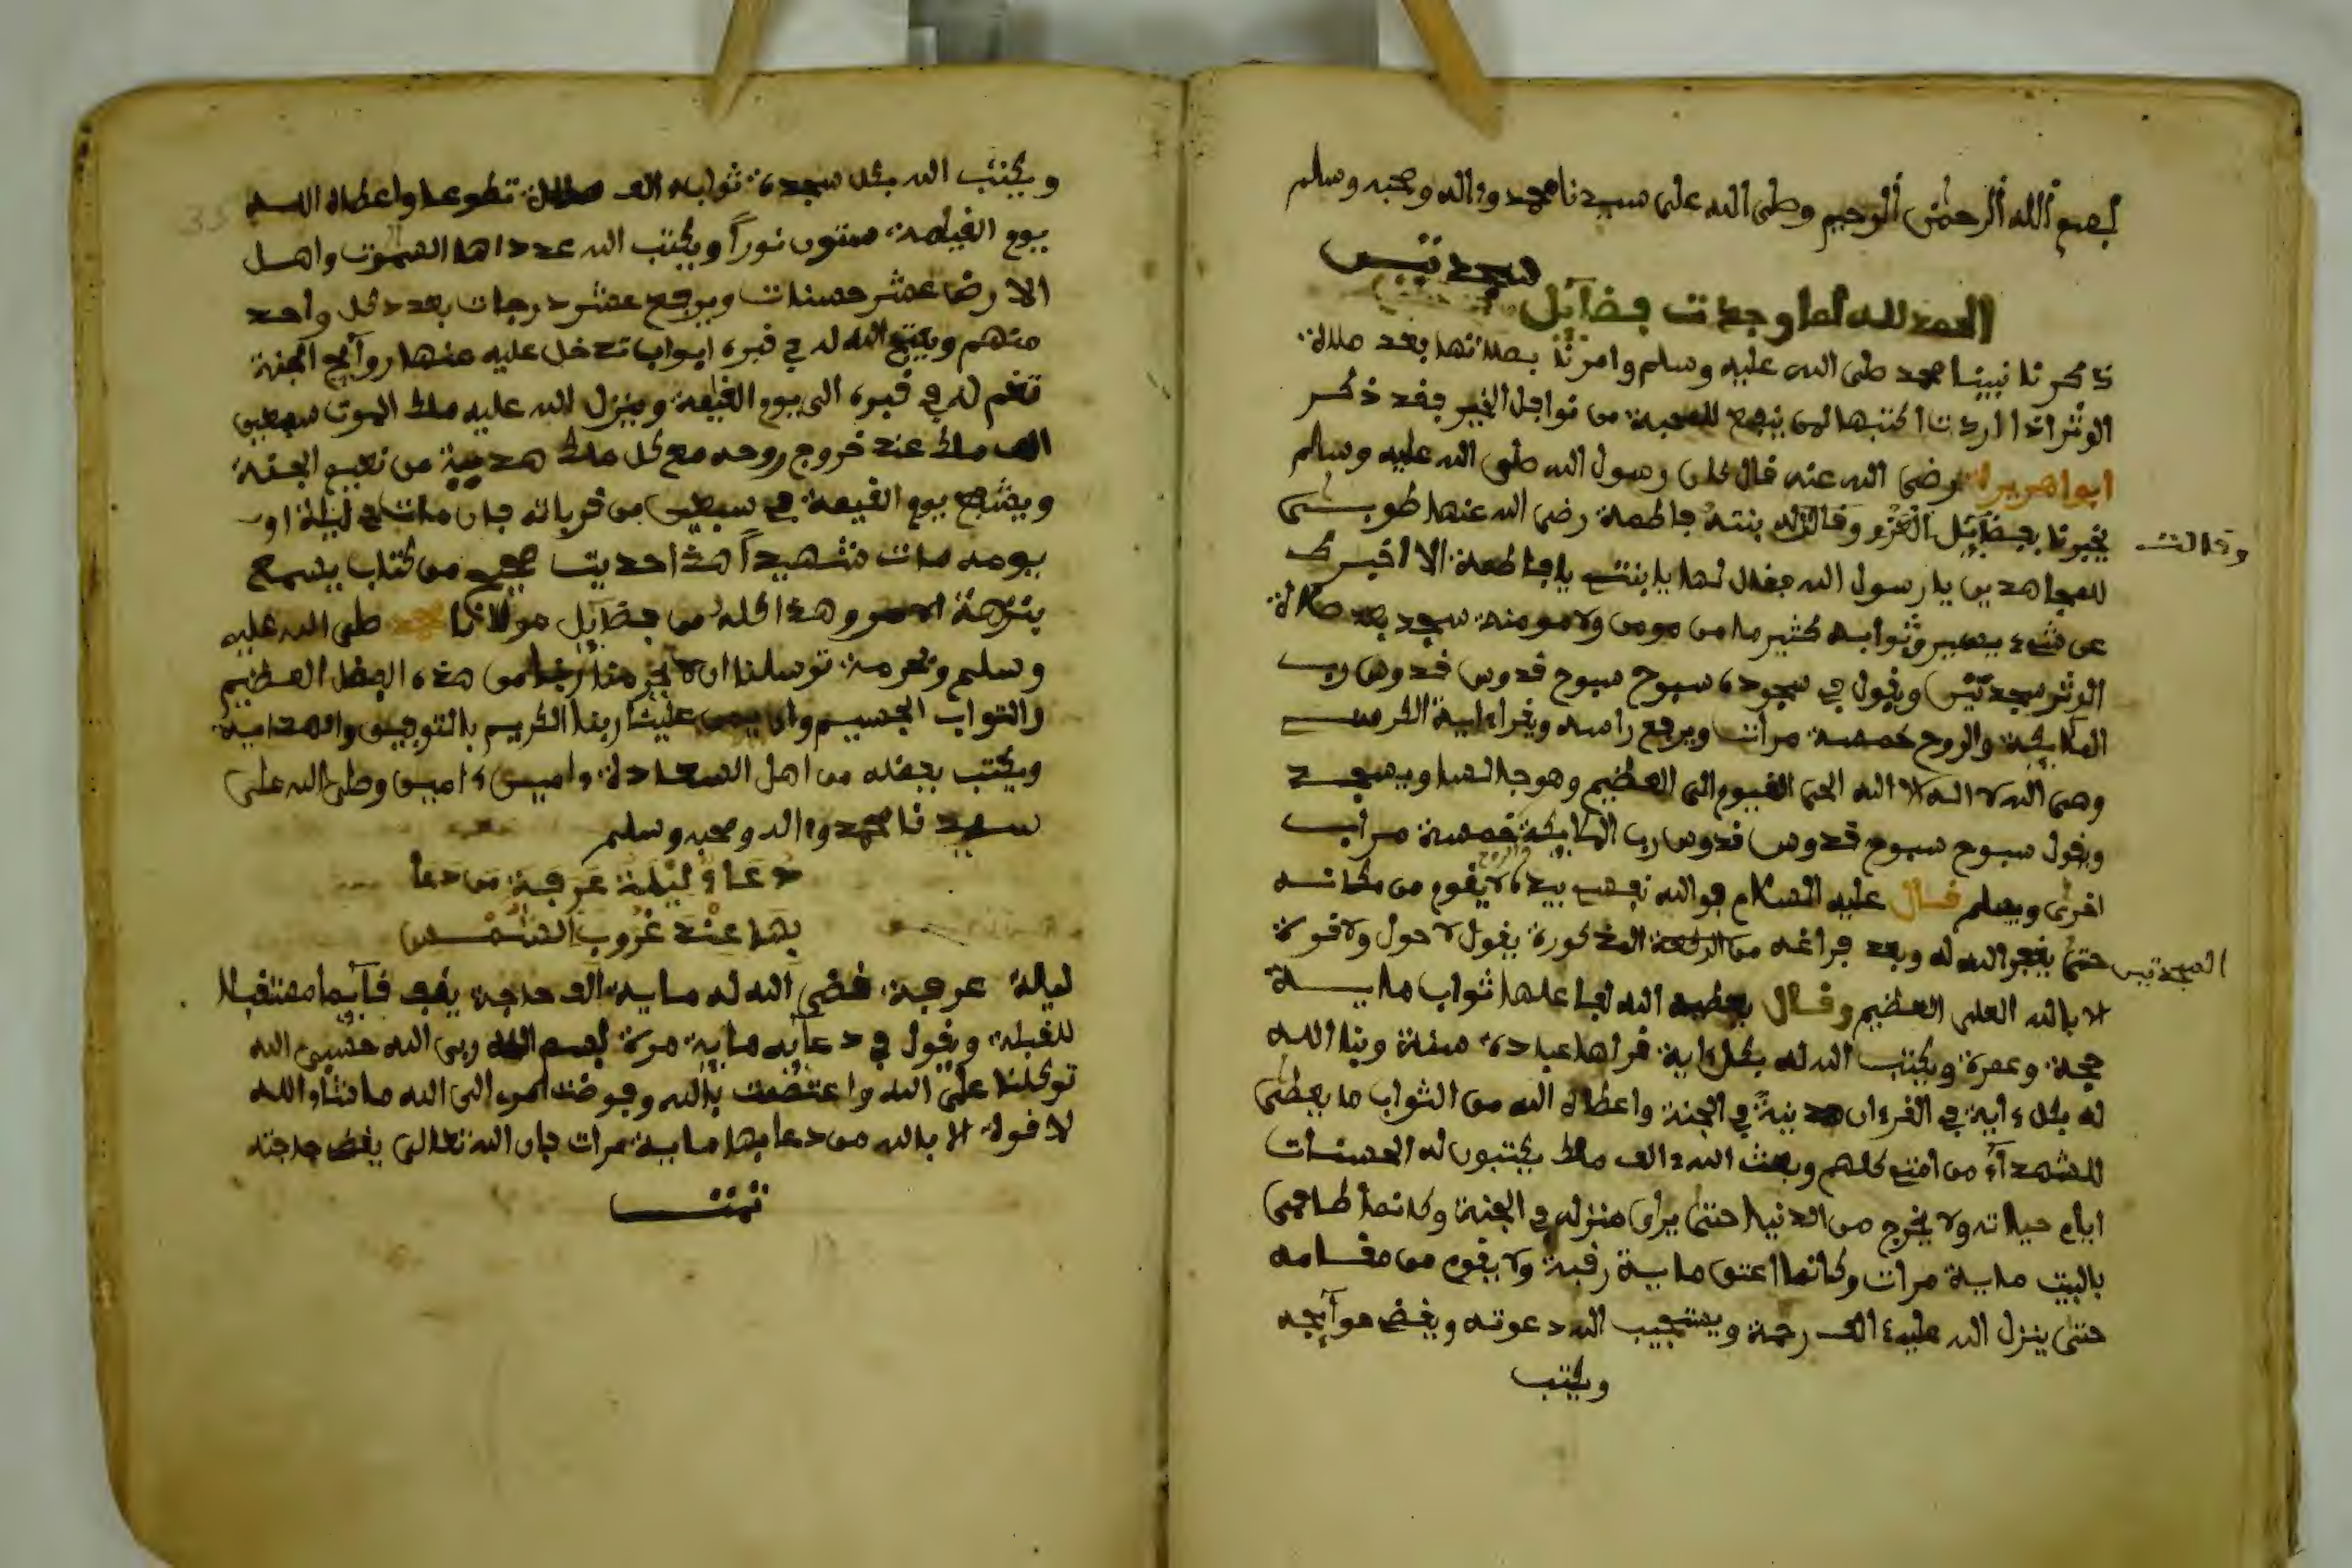 بسم الله الرحمن الرحيم وصلى الله على سيدنا محمد وءاله وصحبه وسلم
سجدتين
الحمد لله لما وجدت فضآئل
ذكرنا نبينا محمد صلى الله عليه وسلم وامرنا بصلاتها بعد صلاة
الوتر اذا اردت اكتبها لمن ينفع للمحبة من نوافل الخير فقد ذكر
ابوا هريرة رضي الله عنه قال كان رسول الله صلى الله عليه وسلم
يخبرنا بفضآئل الغزو وقالت له بنته فاطمة رضي الله عنها طوبى
وقالت
للمجاهدين يا رسول الله فقال لها يا بنتي يا فاطمة الا اخبرك
عن شيء يسير وثوابه كثير ما من مومن ولا مومنة سجد بعد صلاة
الوتر سجدتين ويقول في سجوده سبوح سبوح قدوس قدوس رب
الملايكة والروح خمسة مرات ويرفع راسه ويقرا ءاية الكرسي
وهي الله لا اله الا الله الحي القيوم الى العظيم وهو جالسا ويسجد
ويقول سبوح سبوح قدوس قدوس رب الملايكة والروح خمسة مرات
اخرى ويسلم قال عليه السلام فوالله نفسي بيده لا يقوم من مكانه
حتى يغفر الله له وبعد فراغه من الركعة المذكورة يقول لا حول ولا قوة
السجدتين
الا بالله العلي العظيم وقال يعطيه الله لفاعلها ثواب ماية
حجة وعمرة ويكتب الله له بكل ءاية قراها عبادة سنة وبنا الله
له بكل ءاية في القرءان مدينة في الجنة واعطاه الله من الثواب ما يعطي
للشهدآء من امتي كلهم وبعث الله الف ملك يكتبون له الحسنات
ايام حياته ولا يخرج من الدنيا حتى يرى منزله في الجنة وكانما طاف
بالبيت ماية مرات وكانما اعتق ماية رقبة ولا يقوم من مقامه
حتى ينزل الله عليه الف رحمة ويستجيب الله دعوته ويقض حوآئجه
ويكتب
ويكتب الله بكل سجدة ثوابه الف صلاة تطوعا واعطاه الله
يوم القيمة ستون نورا ويكتب الله عدد اهل السموت واهل
الارض عشر حسنات ويرفع عشر درجات بعدد كل واحد
منهم ويفتح الله له في قبره ابواب تدخل عليه منها روآئح الجنة
تغم له في قبره الى يوم القيمة وينزل الله عليه ملك الموت سبعين
الف ملك عند خروج روحه مع كل ملك هدية من نعيم الجنة
ويشفع يوم القيمة في سبعين من قرباته فان مات في ليلة او
يومه مات شهيدا هذا حديث صحيح من كتاب يسمع
بنزهة وهذا كله من فضآئل مولانا محمد صلى الله عليه
وسلم وبحرمة توسلنا ان لا من هذه الفضل العظيم
والثواب الجسيم وان يمن علينا ربنا الكريم بالتوفيق والهداية
ويكتب بفضله من اهل السعادة ءامين ءامين وصلى الله على
سيدنا محمد وءاله وصحبه وسلم
دعاؤ ليلة عرفة من دعا
بها عند غروب الشمس
ليلة عرفة قضى الله له ماية الف حاجة يقف قآيما مستقبلا
للقبلة ويقول في دعآيه ماية مرة بسم الله ربي الله حسبي الله
توكلنا على الله واعتصمت بالله وفوضت امري الى الله ما شاء الله
لا قوة الا بالله من دعا بها ماية مرات فان الله تعالى يقض حاجته
تمت